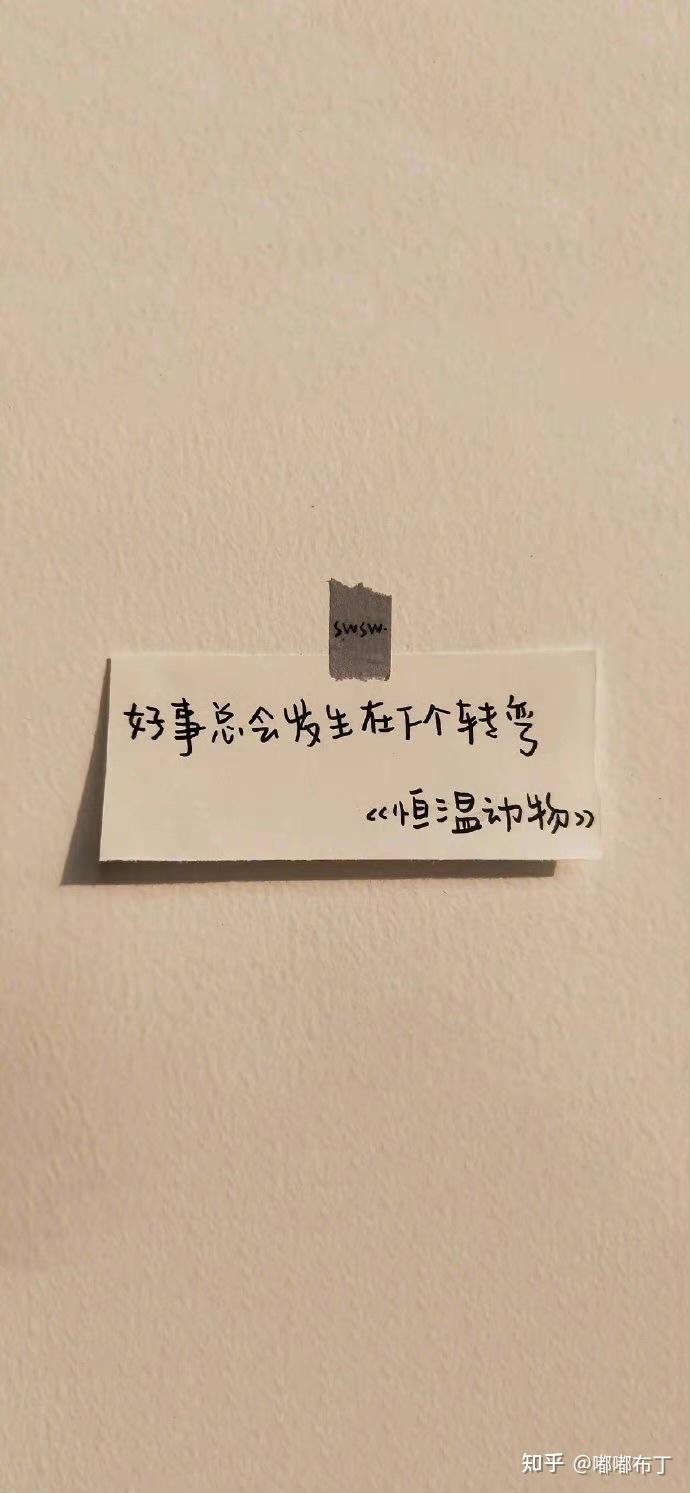 swsw.
好事总会发生在下个转弯
《恒温动物》
知乎 @嘟嘟布丁